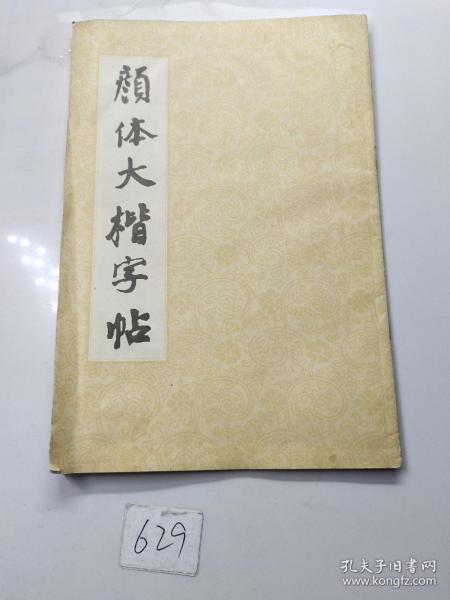 顔体大楷字帖
629
孔夫子旧书网
www.kongfz.com